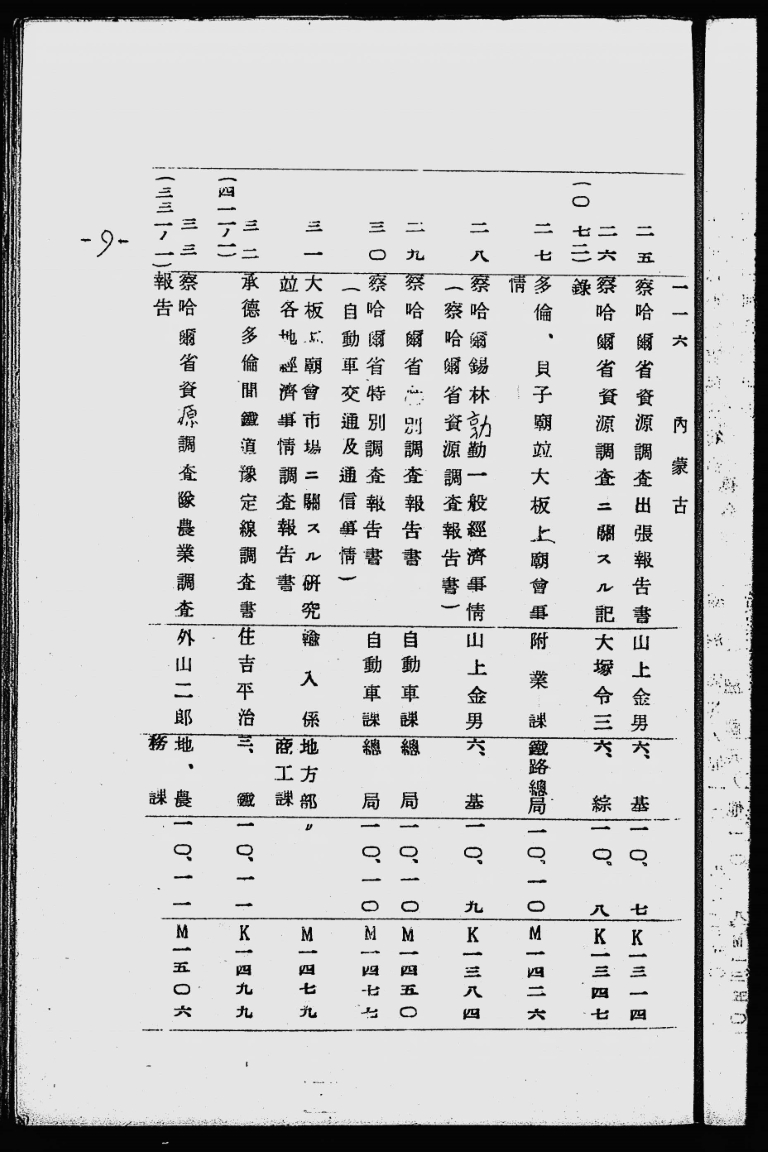 一一六 內蒙古
二五 察哈爾省資源調査出張報告書 山上金男 六、基 一〇、七 K一三一四
二六 察哈爾省資源調査ニ關スル記 大塚令三 六、綜 一〇、八 K一三四七
(一〇 七二) 錄
二七 多倫、貝子廟竝大板上廟會事 附業課 鐵路總局 一〇、一〇 M一四二六
情
二八 察哈爾錫林勤一般經濟事情 山上金男 六、基 一〇、九 K一三八四
(察哈爾省資源調査報告書)
二九 察哈爾省 別調査報告書 自動車課 總局 一〇、一〇 M一四五〇
三〇 察哈爾省特別調査報告書 自動車課 總局 一〇、一〇 M一四七七
(自動車交通及通信事情)
三一 大板上廟會市場ニ關スル硏究 輸入係 地方部 〃 M一四七九
竝各地經濟事情調査報告書 商工課
三二 承德多倫間鐵道豫定線調査書 住吉平治 三、鐵 一〇、一一 K一四九九
(四一一ノ一)
三三 察哈爾省資源調査隊農業調査 外山二郎 地、農 一〇、一一 M一五〇六
(三三一ノ一) 報告 務課
-9-